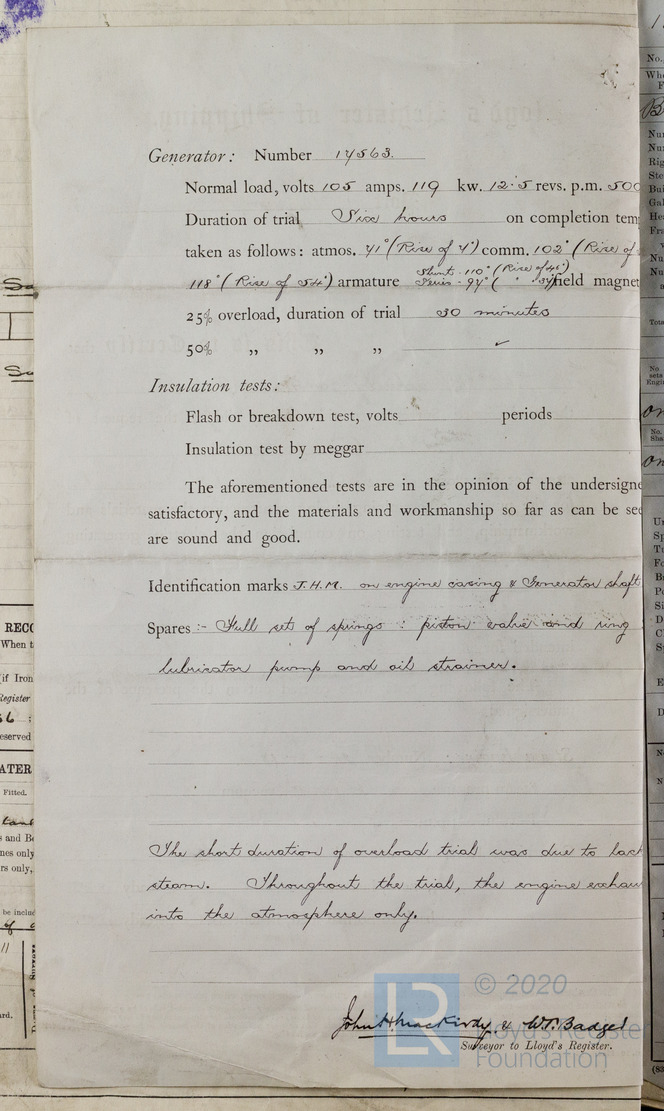 Generator: Number 14563.
Normal load, volts 105 amps. 119 kw. 12.5 revs. p.m. 500
Duration of trial Six hours on completion tem
taken as follows: atmos. (Rise of 4°) comm. 102° (Rise of
118° (Rise of 54°) armature Shunt - 110° (Rise of 46°)
Series - 94° ( " field magnet
25% overload, duration of trial 30 minutes
50% „ „ „ ✓
Insulation tests:
Flash or breakdown test, volts periods
Insulation test by meggar
The aforementioned tests are in the opinion of the undersigne
satisfactory, and the materials and workmanship so far as can be see
are sound and good.
Identification marks J.H.M. on engine casing & Generator shaft
Spares :- Full set of springs : piston valve and ring
lubricator pump and oil strainer.
The short duration of overload trial was due to lack
steam. Throughout the trial, the engine exhau
into the atmosphere only.
John H Mackirdy & W.T. Badger
Surveyor to Lloyd's Register.
LR © 2020
Lloyd's Registe
Foundation